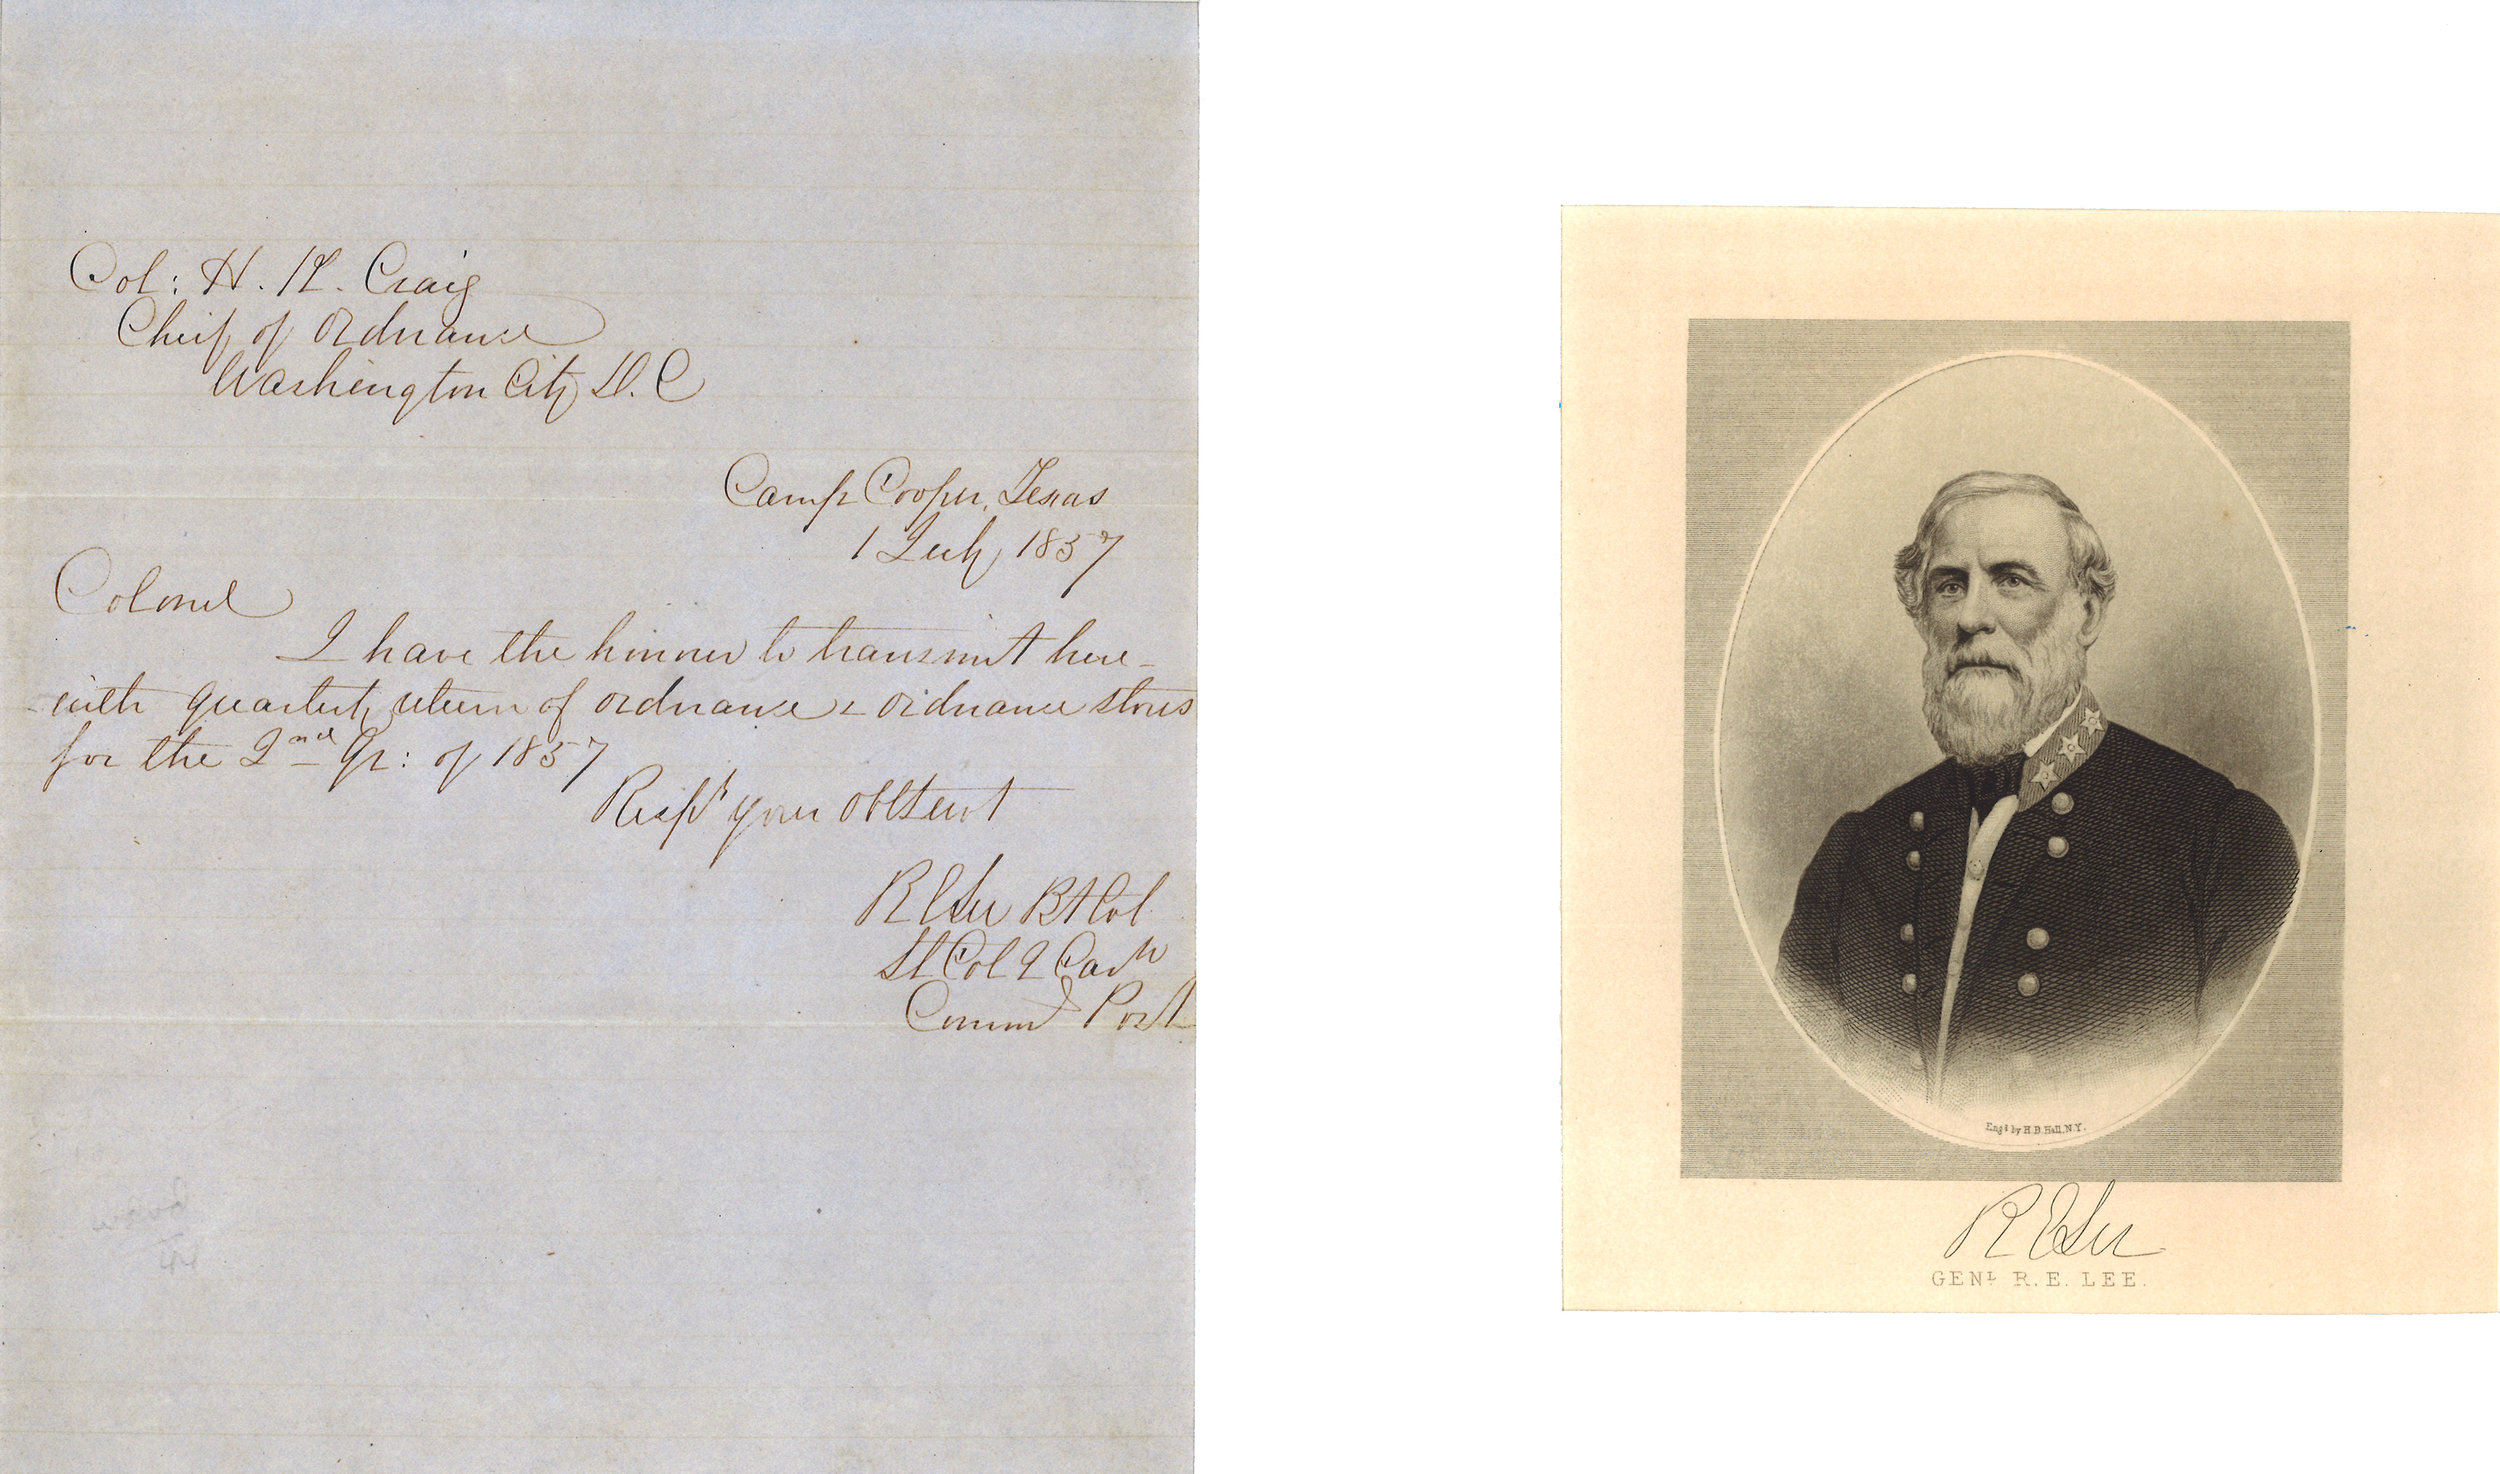 Col: H. K. Craig
Chief of Ordnance
Washington City D. C
Camp Cooper, Texas
1 July 1857
Colonel
I have the honner to transmit here-
with quarterly return of ordnance & ordnance stores
for the 2nd Qr: of 1857
Respy your obt Servt
R E Lee Bt Col
Lt Col 2 Cavy
Commd Post
Engd by H.B. Hall, N.Y.
R E Lee
GENL R. E. LEE.